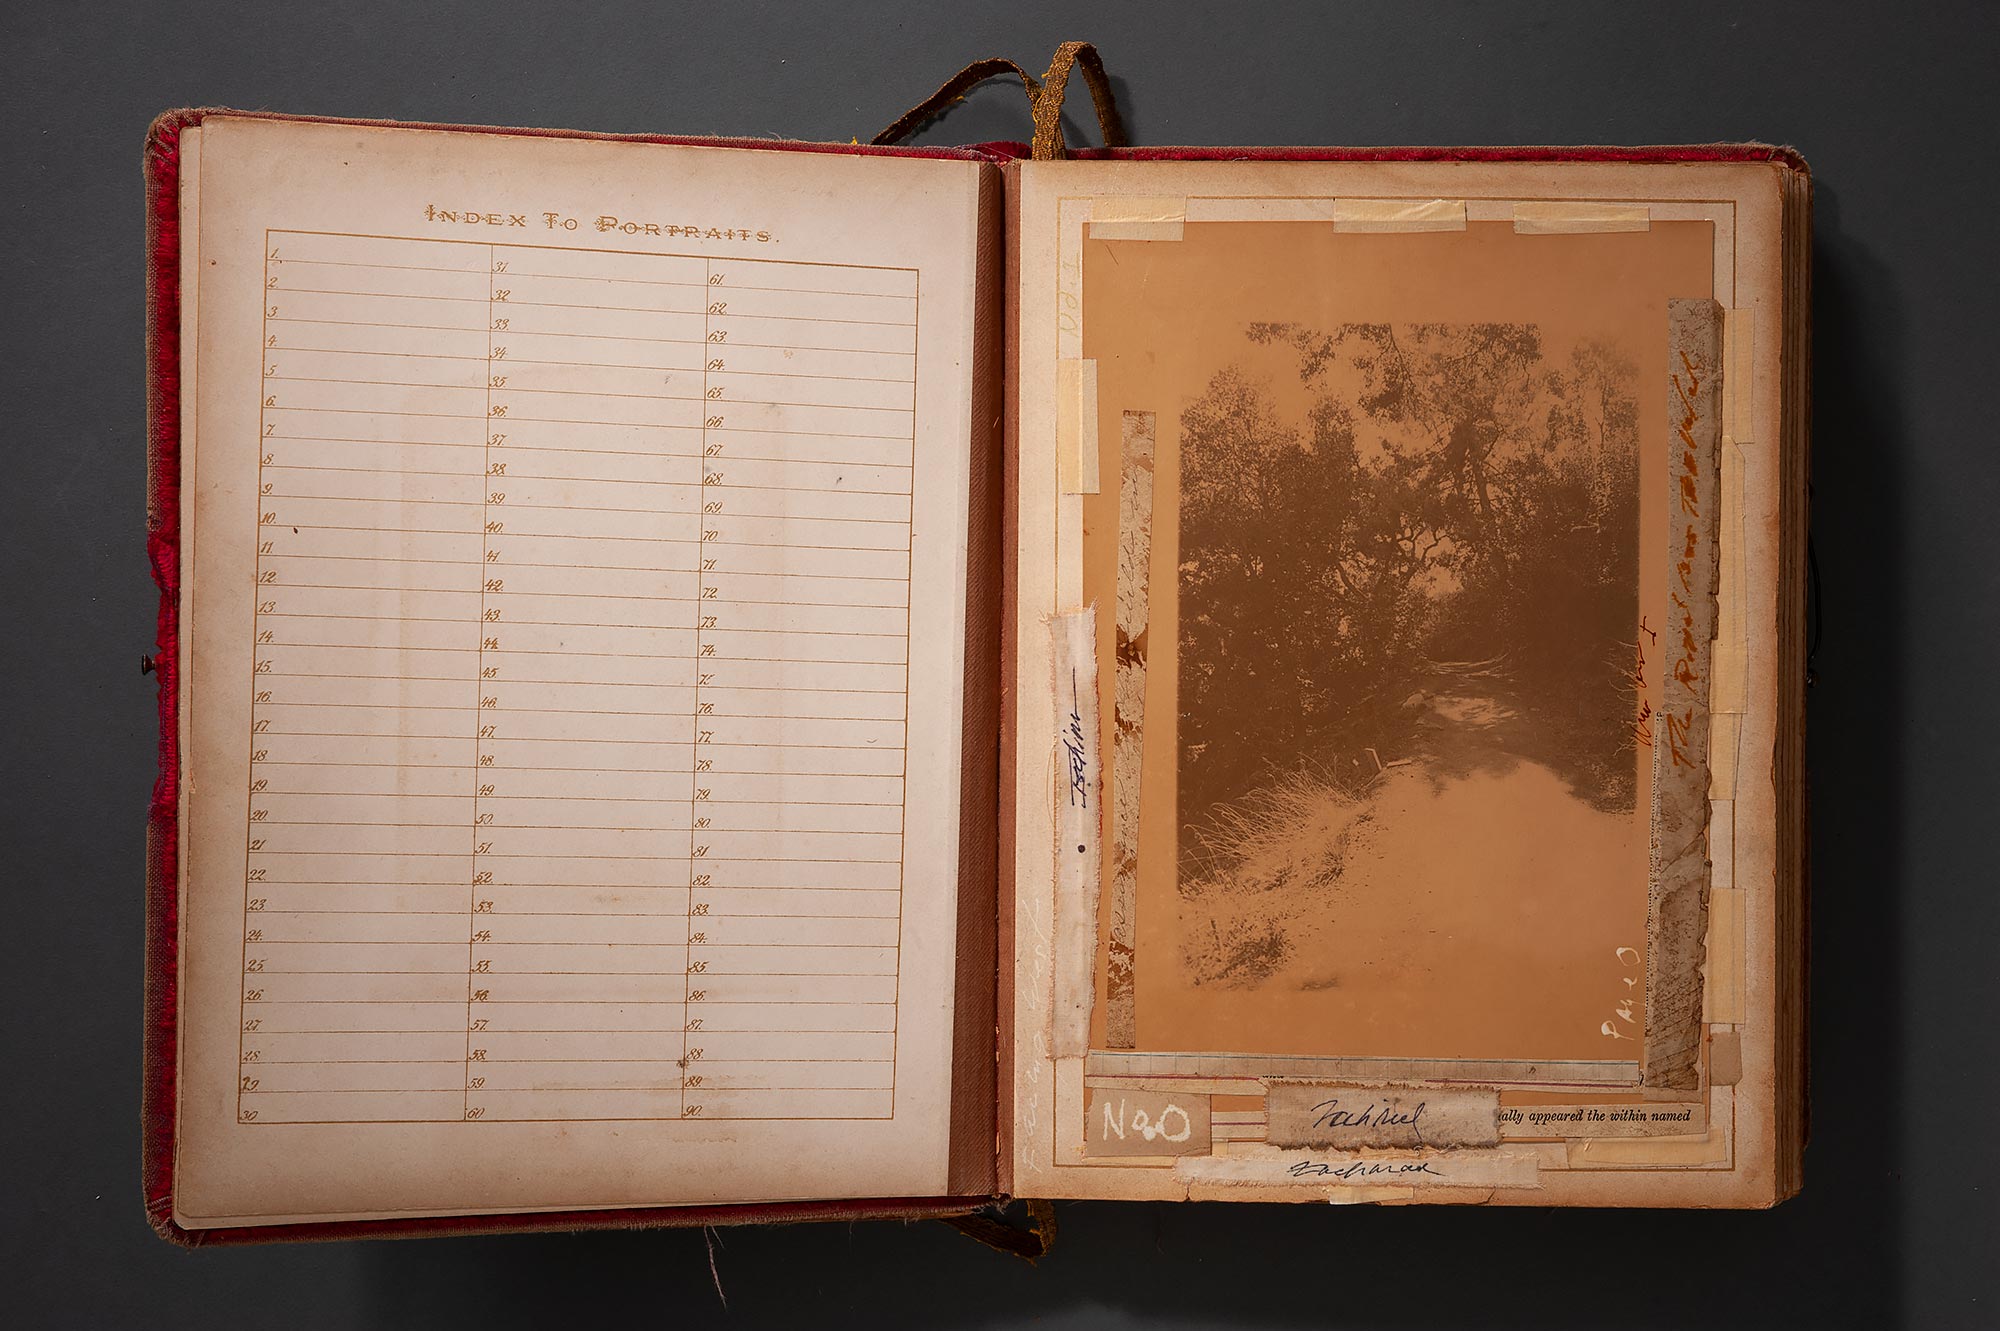 INDEX TO PORTRAITS.
1.
2
3.
4.
5
6.
7.
8.
9.
10.
11.
12.
13.
14.
15.
16.
17.
18.
19.
20.
21
22.
23.
24.
25.
26.
27.
28
29
30
31.
32
33.
34
35
36.
37
38.
39
40.
41.
42.
43.
44.
45
46.
47.
48.
49.
50.
51.
52.
53.
54.
55.
56.
57.
58.
59.
60
61.
62
63.
64.
65.
66.
67.
68.
69.
70.
71.
72.
73.
74.
75
76.
77.
78.
79.
80.
81
82.
83.
84.
85.
86.
87.
88.
89.
90.
No. 1
The
Page 0
No 0
ally appeared the within named